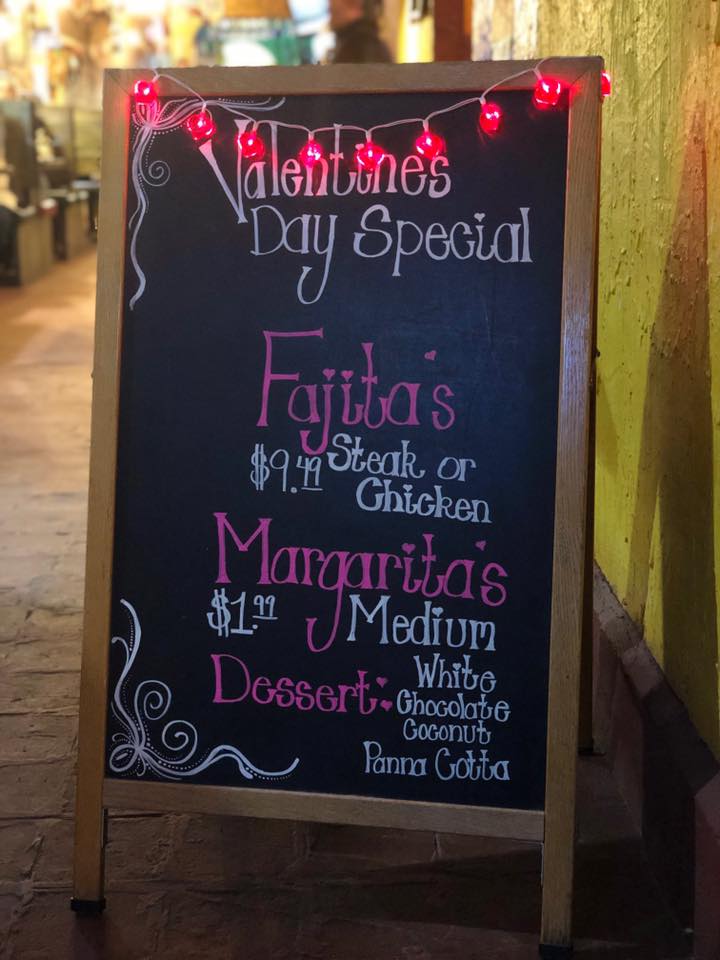 Valentines
Day Special
Fajita's
$9.49 Steak or
Chicken
Margarita's
$1.99 Medium
Dessert: White
Chocolate
Coconut
Panna Cotta